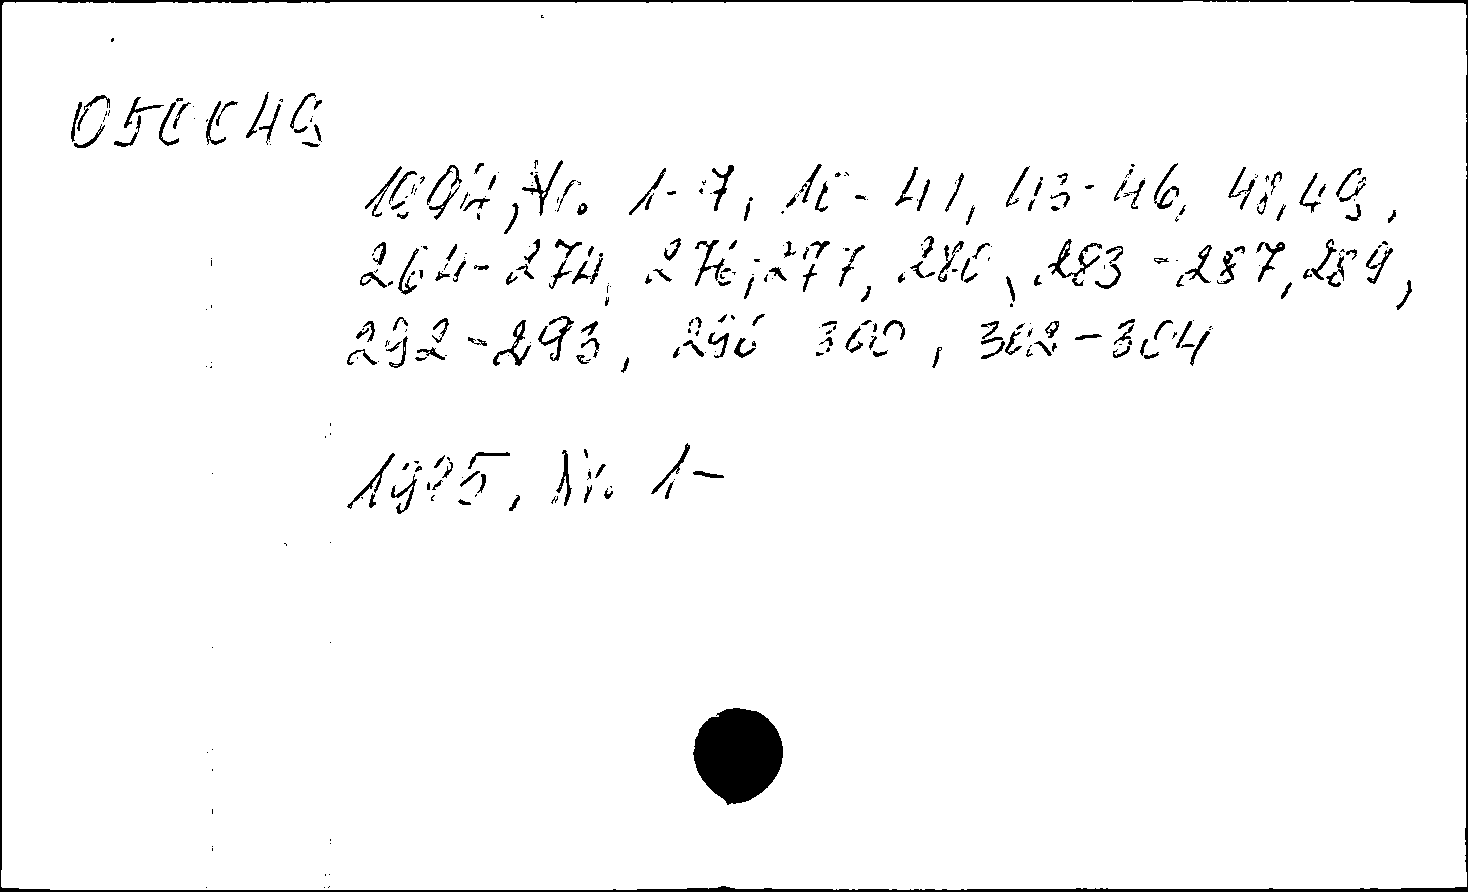 050049
1994, Nr. 1-7, 10-41, 43-46, 48,49,
264-274, 276,277, 280, 283-287,289,
292-293, 296 300, 302-304
1995, Nr. 1-